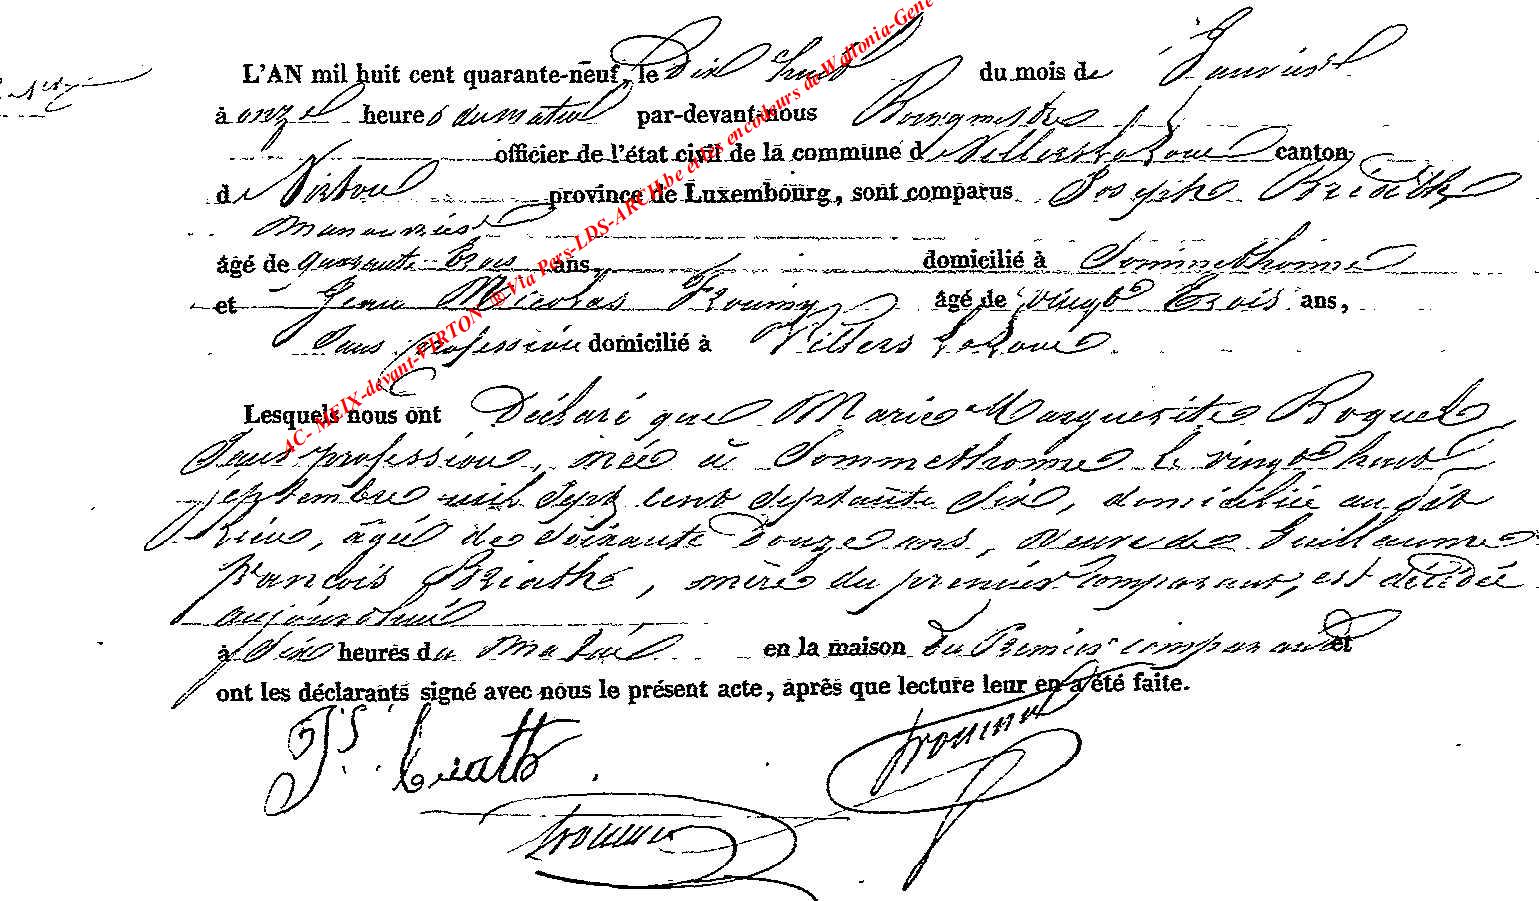 L'AN mil huit cent quarante-neuf, le Dix huit du mois de Janvier
à onze heures du matin par-devant nous Bourgmestre
officier de l'état civil de la commune de Villers la Loue canton
de Virton province de Luxembourg, sont comparus Joseph Briathe
manouvrier
âgé de quarante trois ans, domicilié à Sommethonne
et Jean Nicolas Froumy âgé de vingt trois ans,
Sans profession domicilié à Villers la Loue
Lesquels nous ont Déclaré que Marie Marguerite Roguel
Sans profession, née à Sommethonne le vingt huit
septembre mil sept cent septante six, domiciliée au dit
lieu, âgée de soixante douze ans, veuve de Guillaume
françois Briathe, mère du premier comparant, est décédée
aujourd'hui
à dix heures du Matin en la maison du Premier comparant et
ont les déclarants signé avec nous le présent acte, après que lecture leur en a été faite.
AC- MEIX-devant-VIRTON ® Via Pers-LDS-ARCH.be et les encodeurs de Wallonia-Gene